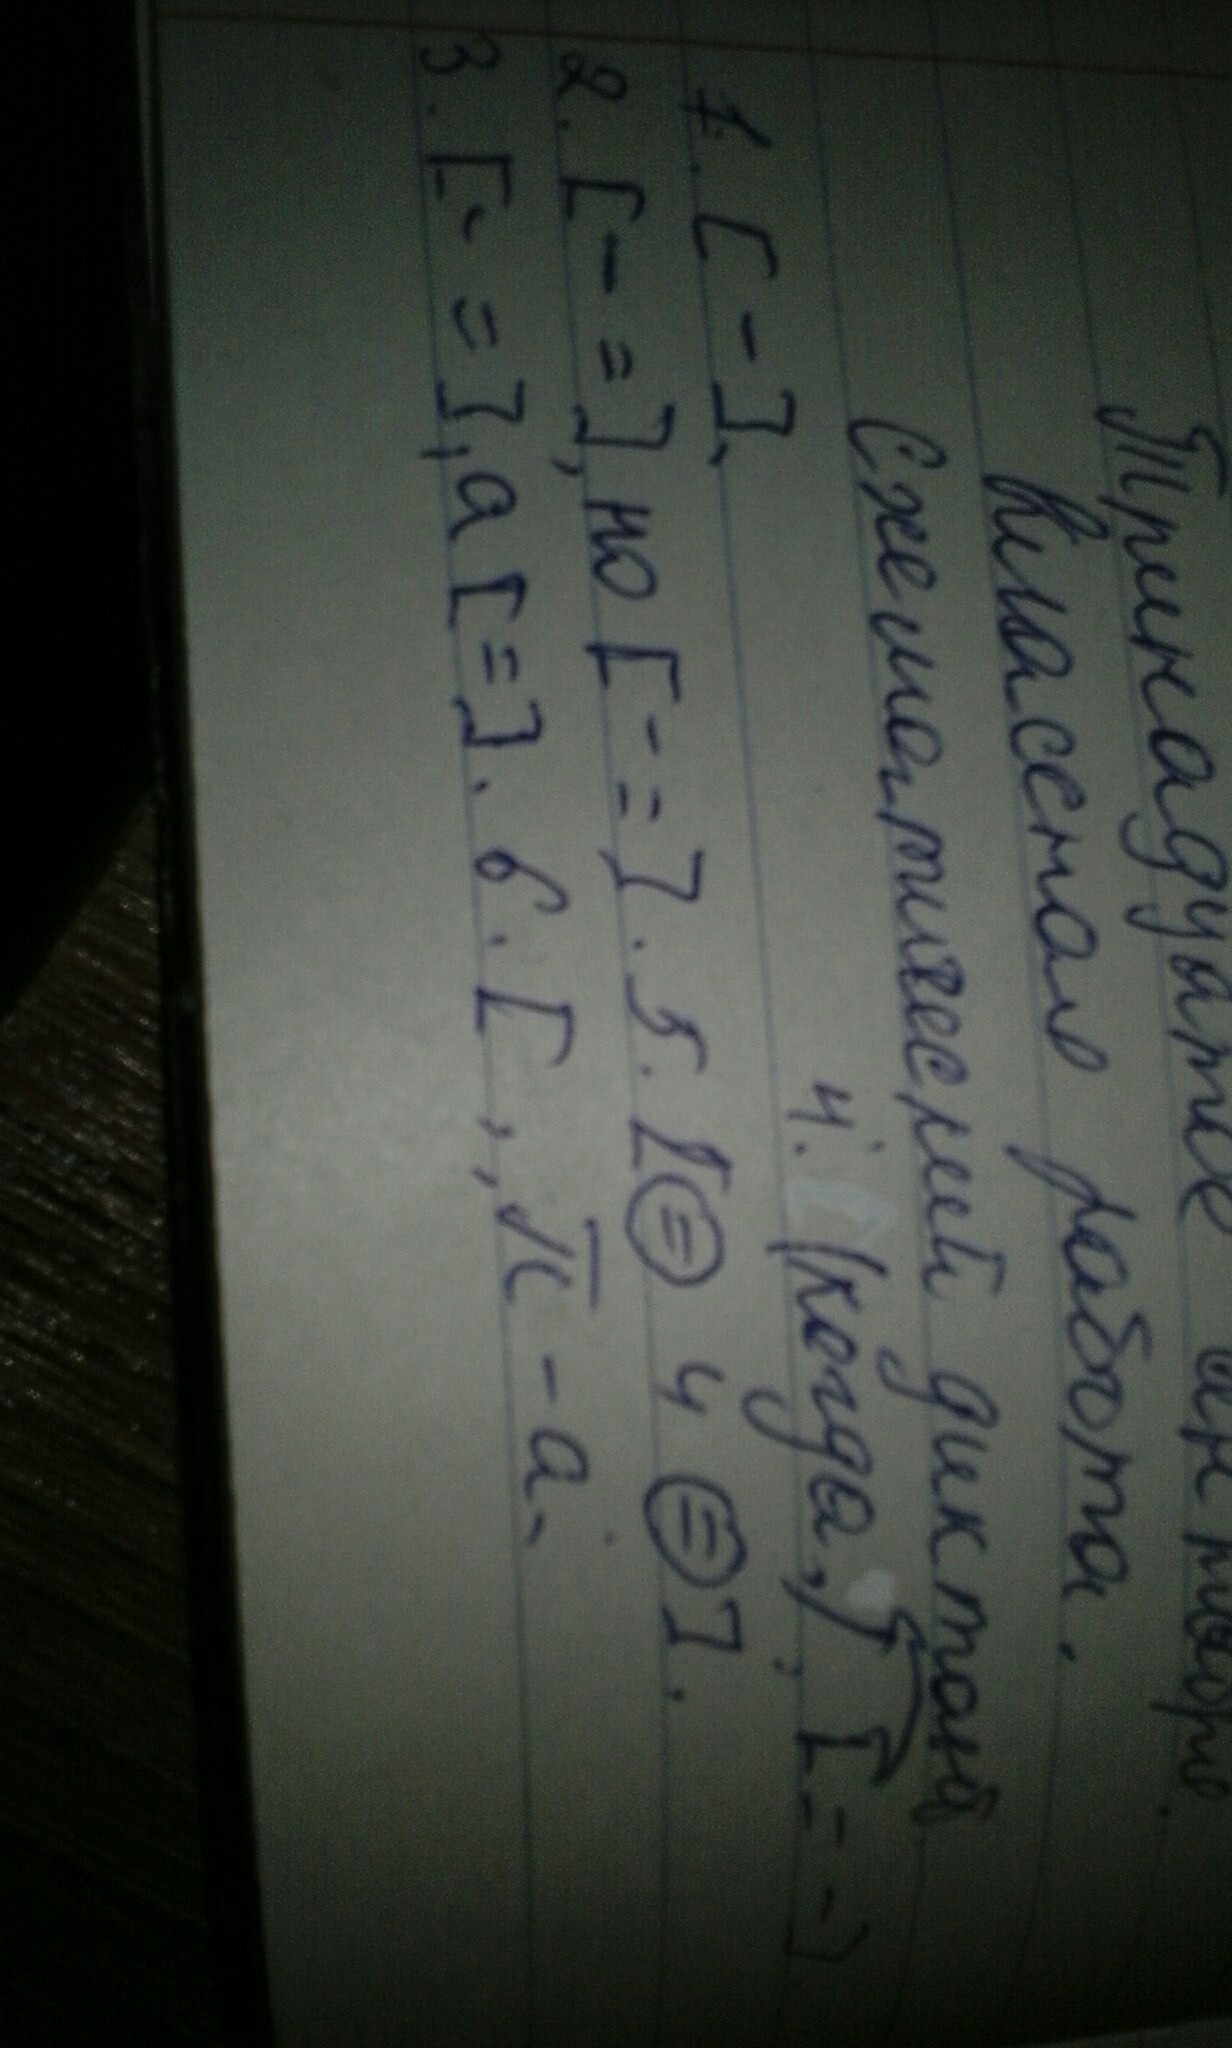 Тринадцатое октября.
Классная работа.
Схематический диктант
1. [-]. 4. (когда,), [= -].
2. [- =], но [- =]. 5. [⊜ и ⊜].
3. [- =], а [=]. 6. [ , , П - а.